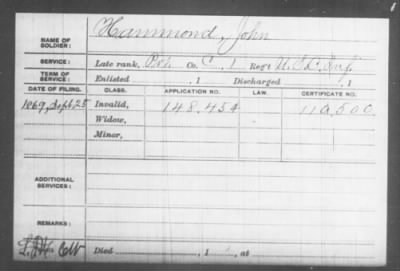 NAME OF SOLDIER: Hammond, John
SERVICE: Late rank, Prt. Co. C. 1 Reg't U.S.C. Inf
TERM OF SERVICE: Enlisted , 1 Discharged , 1
DATE OF FILING. CLASS. APPLICATION NO. LAW. CERTIFICATE NO.
1869, Sept. 25 Invalid, 148.454 110.500
Widow,
Minor,
ADDITIONAL SERVICES:
REMARKS:
Died , 1 , at